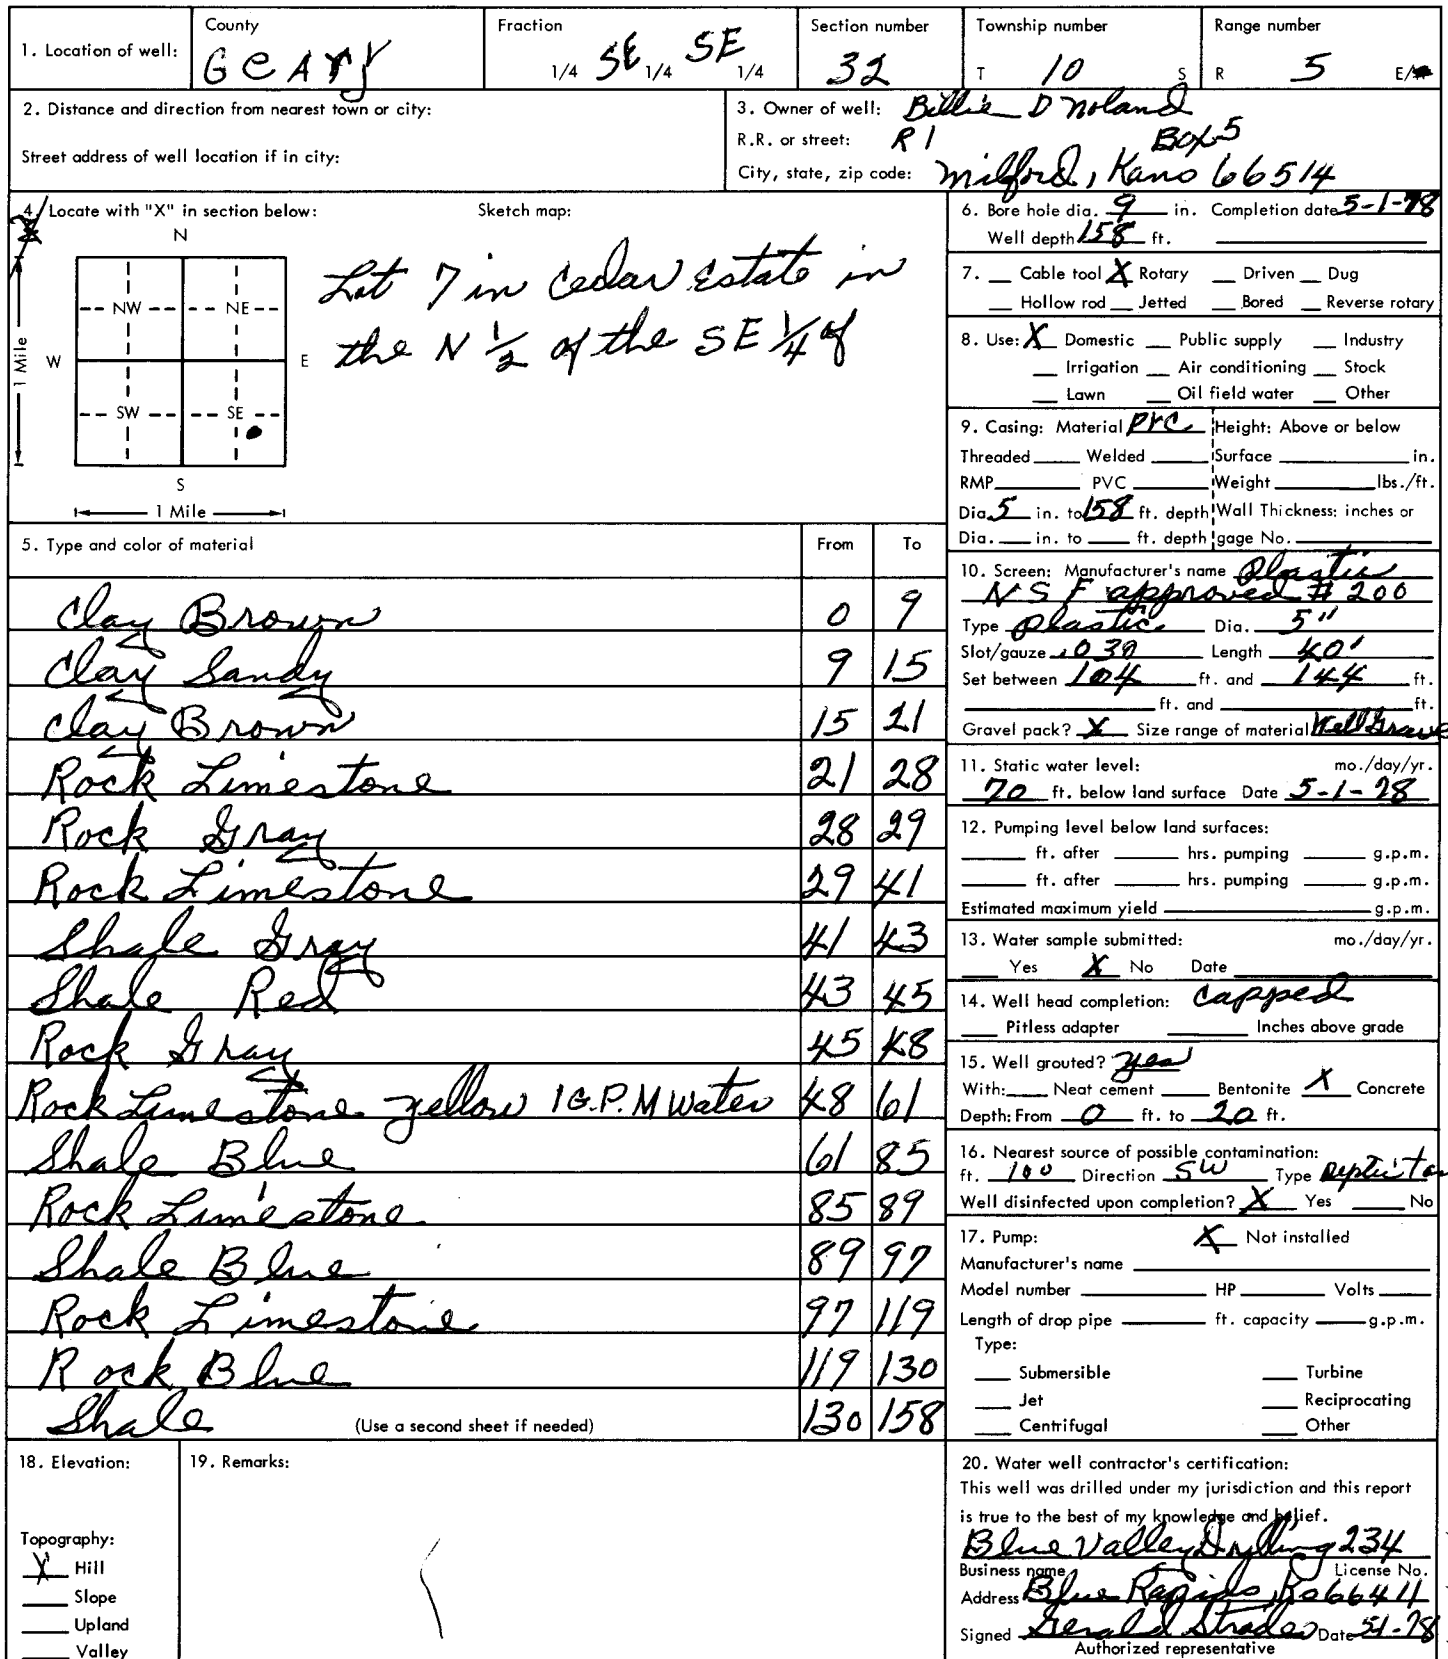 1. Location of well:
County
GeAry
Fraction
1/4 SE 1/4 SE 1/4
Section number
32
Township number
T 10 S
Range number
R 5 E/
2. Distance and direction from nearest town or city:
Street address of well location if in city:
3. Owner of well: Billie D Noland
R.R. or street: R 1 Box 5
City, state, zip code: Milford, Kans 66514
4. Locate with "X" in section below:
Sketch map:
N
NW NE
W E
SW SE
S
1 Mile
1 Mile
Lot 7 in Cedar Estate in
the N 1/2 of the SE 1/4 of
5. Type and color of material From To
Clay Brown 0 9
Clay Sandy 9 15
Clay Brown 15 21
Rock Limestone 21 28
Rock Gray 28 29
Rock Limestone 29 41
Shale Gray 41 43
Shale Red 43 45
Rock Gray 45 48
Rock Limestone yellow 1 G.P.M Water 48 61
Shale Blue 61 85
Rock Limestone 85 89
Shale Blue 89 97
Rock Limestone 97 119
Rock Blue 119 130
Shale (Use a second sheet if needed) 130 158
6. Bore hole dia. 9 in. Completion date 5-1-78
Well depth 158 ft.
7. Cable tool X Rotary Driven Dug
Hollow rod Jetted Bored Reverse rotary
8. Use: X Domestic Public supply Industry
Irrigation Air conditioning Stock
Lawn Oil field water Other
9. Casing: Material PVC Height: Above or below
Threaded Welded Surface in.
RMP PVC Weight lbs./ft.
Dia. 5 in. to 158 ft. depth Wall Thickness: inches or
Dia. in. to ft. depth gage No.
10. Screen: Manufacturer's name Plastic
N S F approved # 200
Type Plastic Dia. 5"
Slot/gauze .030 Length 40'
Set between 104 ft. and 144 ft.
ft. and ft.
Gravel pack? X Size range of material Well Grave
11. Static water level: mo./day/yr.
70 ft. below land surface Date 5-1-78
12. Pumping level below land surfaces:
ft. after hrs. pumping g.p.m.
ft. after hrs. pumping g.p.m.
Estimated maximum yield g.p.m.
13. Water sample submitted: mo./day/yr.
Yes X No Date
14. Well head completion: Capped
Pitless adapter Inches above grade
15. Well grouted? yes
With: Neat cement Bentonite X Concrete
Depth: From 0 ft. to 20 ft.
16. Nearest source of possible contamination:
ft. 100 Direction SW Type Septic Tan
Well disinfected upon completion? X Yes No
17. Pump: X Not installed
Manufacturer's name
Model number HP Volts
Length of drop pipe ft. capacity g.p.m.
Type:
Submersible Turbine
Jet Reciprocating
Centrifugal Other
18. Elevation:
Topography:
X Hill
Slope
Upland
Valley
19. Remarks:
20. Water well contractor's certification:
This well was drilled under my jurisdiction and this report
is true to the best of my knowledge and belief.
Blue Valley Drilling 234
Business name License No.
Address Blue Rapids, Ks 66411
Signed Gerald Strader Date 5-1-78
Authorized representative